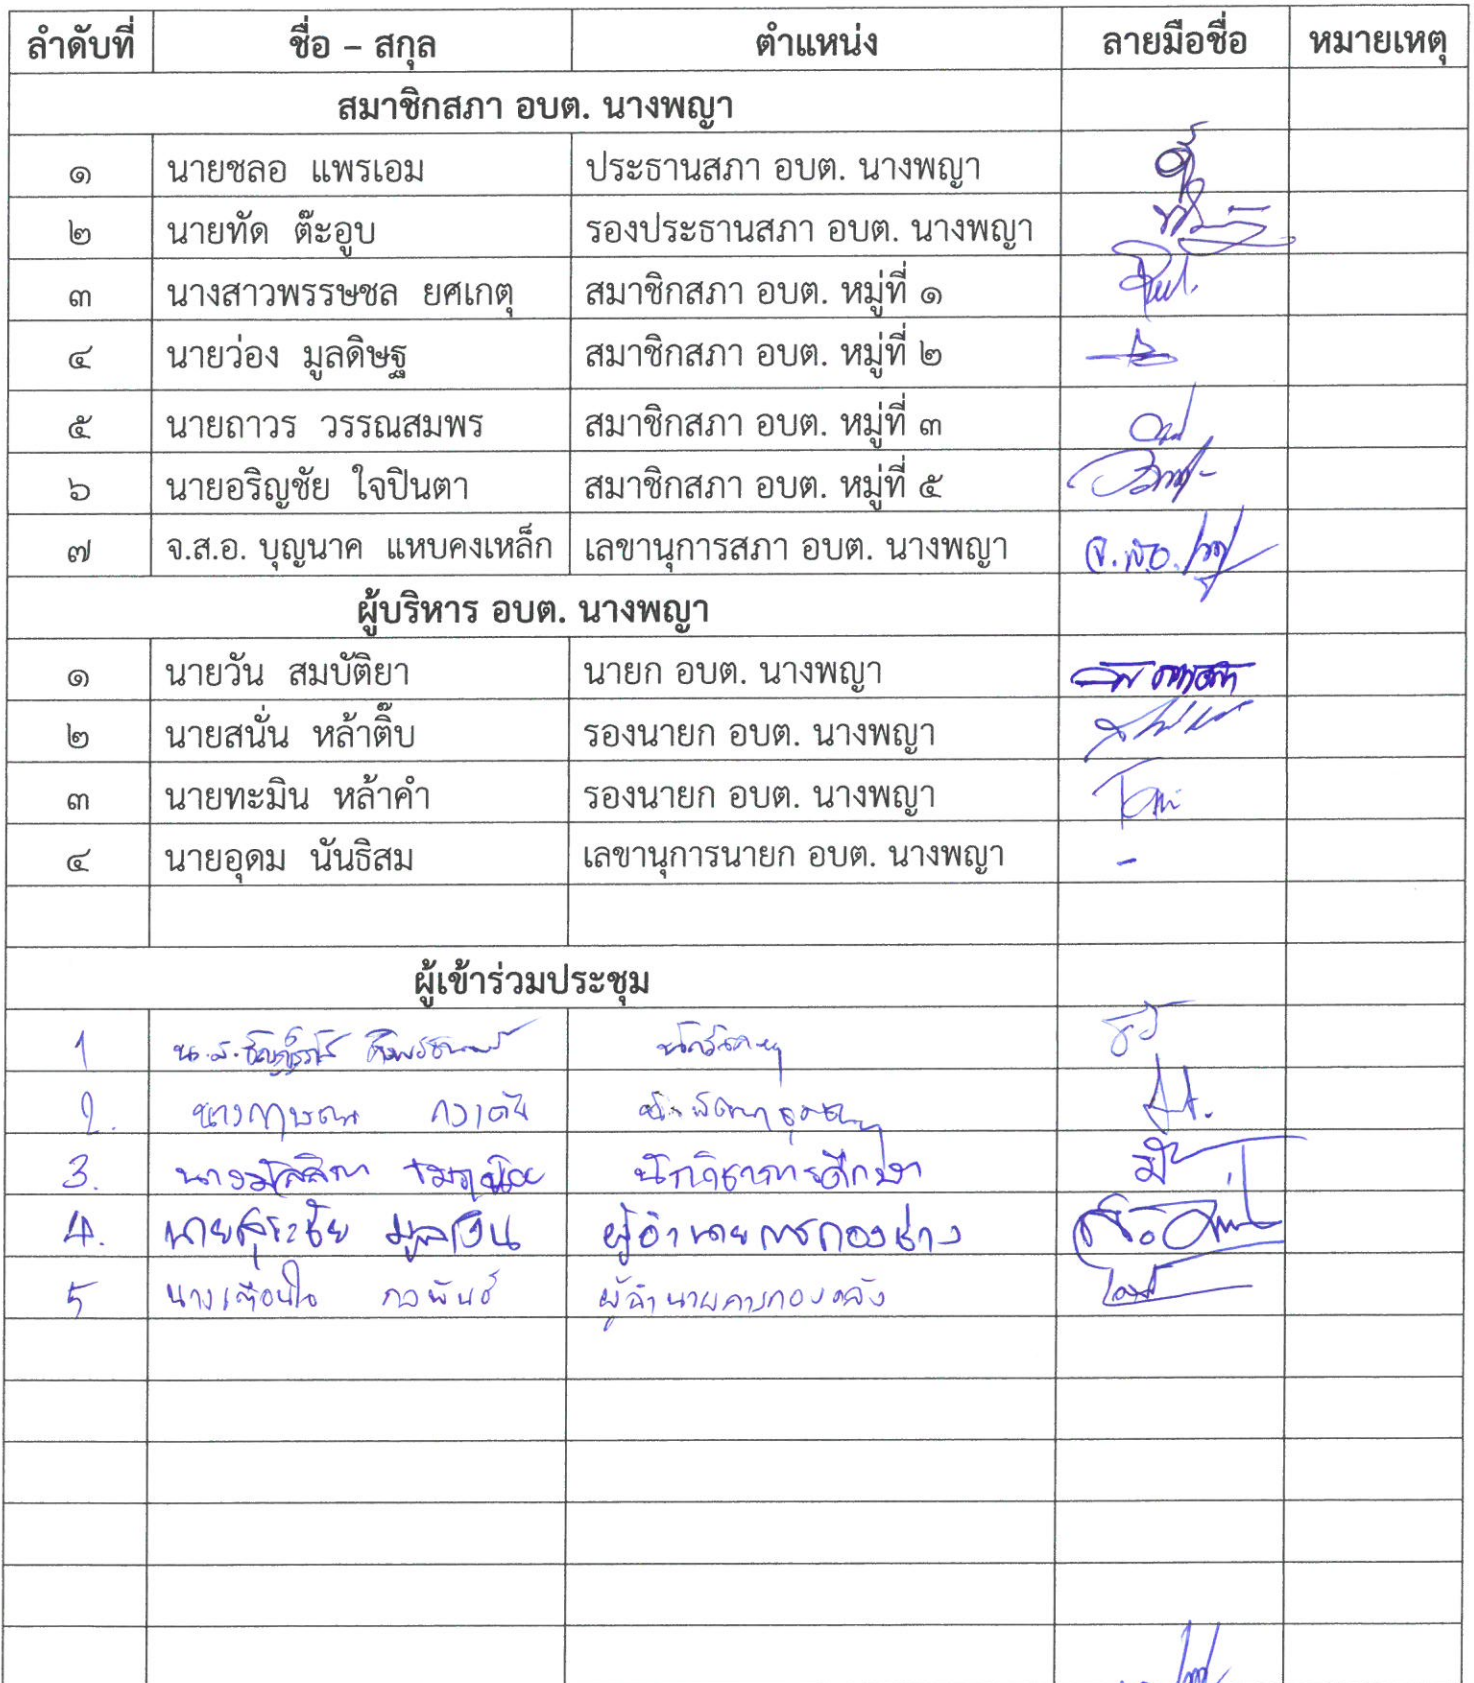 ลำดับที่ ชื่อ – สกุล ตำแหน่ง ลายมือชื่อ หมายเหตุ
สมาชิกสภา อบต. นางพญา
๑ นายชลอ แพรเอม ประธานสภา อบต. นางพญา
๒ นายทัด ต๊ะอูบ รองประธานสภา อบต. นางพญา
๓ นางสาวพรรษชล ยศเกตุ สมาชิกสภา อบต. หมู่ที่ ๑
๔ นายว่อง มูลดิษฐ สมาชิกสภา อบต. หมู่ที่ ๒
๕ นายถาวร วรรณสมพร สมาชิกสภา อบต. หมู่ที่ ๓
๖ นายอริญชัย ใจปินตา สมาชิกสภา อบต. หมู่ที่ ๕
๗ จ.ส.อ. บุญนาค แหบคงเหล็ก เลขานุการสภา อบต. นางพญา จ.ส.อ.
ผู้บริหาร อบต. นางพญา
๑ นายวัน สมบัติยา นายก อบต. นางพญา
๒ นายสนั่น หล้าติ๊บ รองนายก อบต. นางพญา
๓ นายทะมิน หล้าคำ รองนายก อบต. นางพญา
๔ นายอุดม นันธิสม เลขานุการนายก อบต. นางพญา -
ผู้เข้าร่วมประชุม
1 น.ส.
2. นาง
3. นาง นักวิชาการศึกษา
4. นายสุระชัย มูลเงิน ผู้อำนวยการกองช่าง
5 นางเตือนใจ ผู้อำนวยการกองคลัง